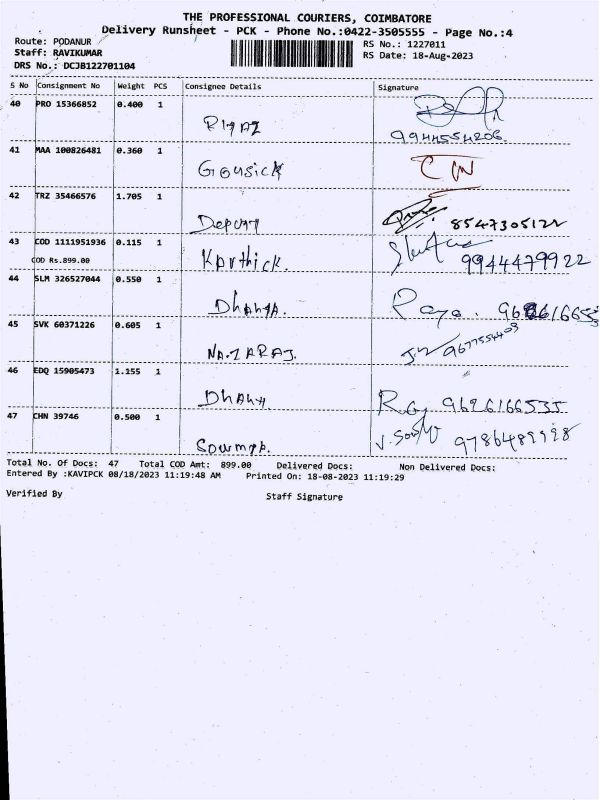 THE PROFESSIONAL COURIERS, COIMBATORE
Delivery Runsheet - PCK - Phone No.:0422-3505555 - Page No.:4
Route: PODANUR
Staff: RAVIKUMAR
DRS No.: DCJB122701104
RS No.: 1227011
RS Date: 18-Aug-2023
S No Consignment No Weight PCS Consignee Details Signature
40 PRO 15366852 0.400 1
Riyaz
9944554206
41 MAA 100826481 0.360 1
Gousick
42 TRZ 35466576 1.705 1
8547305122
43 COD 1111951936 0.115 1
COD Rs.899.00
Karthick. 9944479922
44 SLM 326527044 0.550 1
Dhanya.
45 SVK 60371226 0.605 1
Na.zaraj. 9677554403
46 EDQ 15905473 1.155 1
Dhany 9626166535
47 CHN 39746 0.500 1
Sowmya. 9786489998
Total No. Of Docs: 47 Total COD Amt: 899.00 Delivered Docs: Non Delivered Docs:
Entered By :KAVIPCK 08/18/2023 11:19:48 AM Printed On: 18-08-2023 11:19:29
Verified By Staff Signature